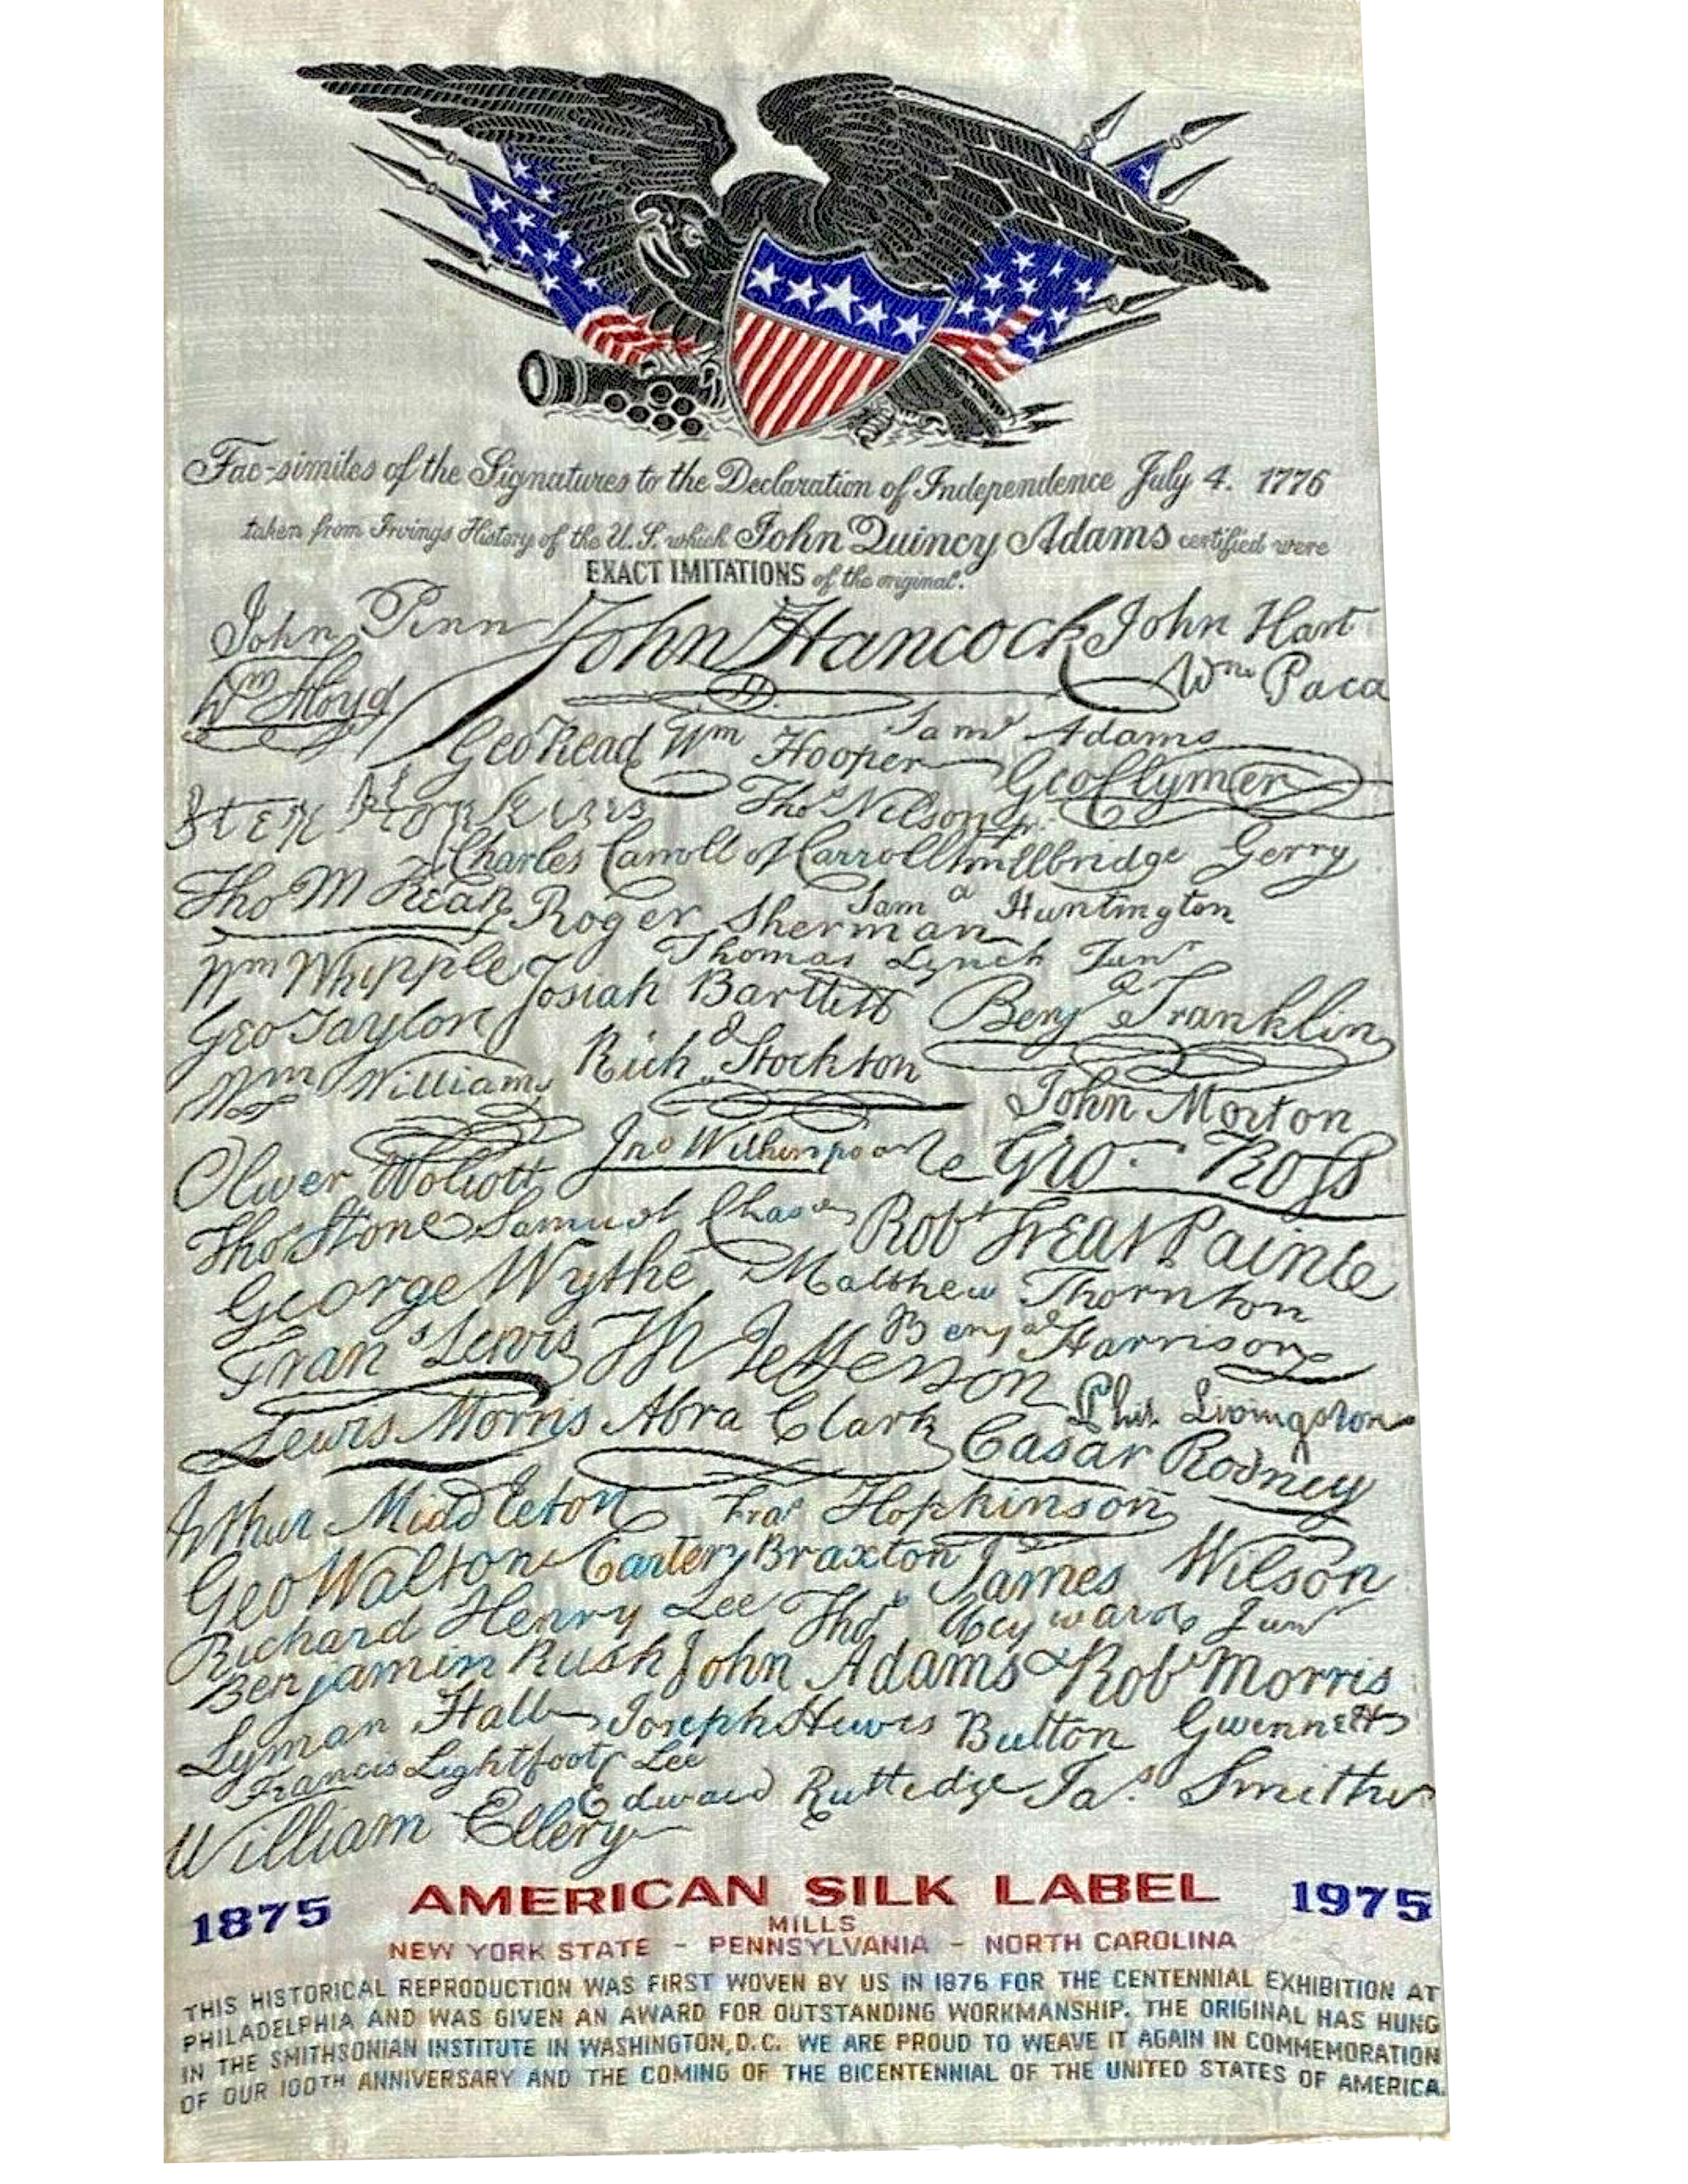 Fac-similes of the Signatures to the Declaration of Independence July 4. 1776
taken from Irvings History of the U.S. which John Quincy Adams certified were
EXACT IMITATIONS of the original.
John Penn John Hancock John Hart
Wm Floyd Wm Paca
Geo Read Wm Hooper Saml Adams
Geo Clymer
Step Hopkins Thos Nelson jr.
Charles Carroll of Carrollton Elbridge Gerry
Tho M Kean Roger Sherman Sam a Huntington
Wm Whipple Thomas Lynch Junr
Josiah Bartlett Benj a Franklin
Geo Taylor Richd Stockton
Wm Williams John Morton
Oliver Wolcott Jno Witherspoon Geo. Ross
Tho Stone Samuel Chase Robt Treat Paine
George Wythe Matthew Thornton
Frans Lewis Th Jefferson Benja Harrison
Lewis Morris Abra Clark Phil. Livingston
Casar Rodney
Arthur Middleton Fras Hopkinson
Geo Walton Carter Braxton James Wilson
Richard Henry Lee Thos Heyward Junr
Benjamin Rush John Adams Robt Morris
Lyman Hall Joseph Hewes Button Gwinnett
Francis Lightfoot Lee
Edward Rutledge Jas. Smith
William Ellery
1875 AMERICAN SILK LABEL 1975
MILLS
NEW YORK STATE - PENNSYLVANIA - NORTH CAROLINA
THIS HISTORICAL REPRODUCTION WAS FIRST WOVEN BY US IN 1876 FOR THE CENTENNIAL EXHIBITION AT
PHILADELPHIA AND WAS GIVEN AN AWARD FOR OUTSTANDING WORKMANSHIP. THE ORIGINAL HAS HUNG
IN THE SMITHSONIAN INSTITUTE IN WASHINGTON, D.C. WE ARE PROUD TO WEAVE IT AGAIN IN COMMEMORATION
OF OUR 100TH ANNIVERSARY AND THE COMING OF THE BICENTENNIAL OF THE UNITED STATES OF AMERICA.